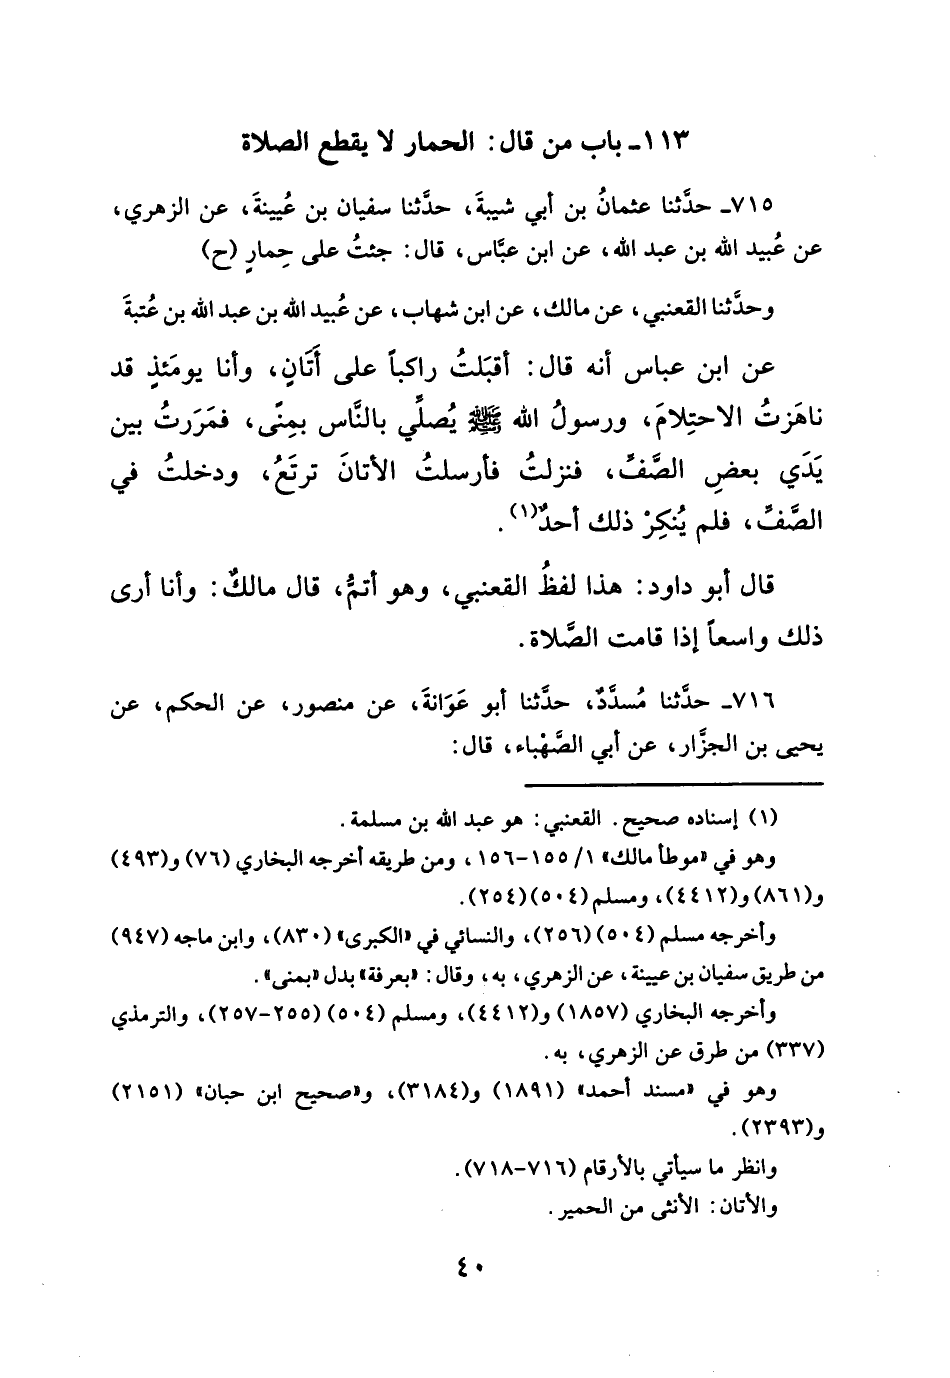 ١١٣ـ باب من قال: الحمار لا يقطع الصلاة
٧١٥ـ حدَّثنا عثمانُ بن أبي شيبةَ، حدَّثنا سفيان بن عُيينةَ، عن الزهري،
عن عُبيد الله بن عبد الله، عن ابن عبَّاس، قال: جئتُ على حِمارٍ (ح)
وحدَّثنا القعنبي، عن مالك، عن ابن شهاب، عن عُبيد الله بن عبد الله بن عُتبةَ
عن ابن عباس أنه قال: أقبَلتُ راكباً على أَتَانٍ، وأنا يومَئذٍ قد
ناهَزتُ الاحتِلامَ، ورسولُ الله ﷺ يُصلِّي بالنَّاس بمِنًى، فمَرَرتُ بين
يَدَي بعضِ الصَّفِّ، فنزلتُ فأرسلتُ الأتانَ ترتَعُ، ودخلتُ في
الصَّفِّ، فلم يُنكِرْ ذلك أحدٌ(١).
قال أبو داود: هذا لفظُ القعنبي، وهو أتمُّ، قال مالكٌ: وأنا أرى
ذلك واسعاً إذا قامت الصَّلاة.
٧١٦ـ حدَّثنا مُسدَّدٌ، حدَّثنا أبو عَوَانةَ، عن منصور، عن الحكم، عن
يحيى بن الجزَّار، عن أبي الصَّهْباء، قال:
(١) إسناده صحيح. القعنبي: هو عبد الله بن مسلمة.
وهو في «موطأ مالك» ١/ ١٥٥-١٥٦، ومن طريقه أخرجه البخاري (٧٦) و(٤٩٣)
و(٨٦١) و(٤٤١٢)، ومسلم (٥٠٤) (٢٥٤).
وأخرجه مسلم (٥٠٤) (٢٥٦)، والنسائي في «الكبرى» (٨٣٠)، وابن ماجه (٩٤٧)
من طريق سفيان بن عيينة، عن الزهري، به، وقال: «بعرفة» بدل «بمنى».
وأخرجه البخاري (١٨٥٧) و(٤٤١٢)، ومسلم (٥٠٤) (٢٥٥-٢٥٧)، والترمذي
(٣٣٧) من طرق عن الزهري، به.
وهو في «مسند أحمد» (١٨٩١) و(٣١٨٤)، و«صحيح ابن حبان» (٢١٥١)
و(٢٣٩٣).
وانظر ما سيأتي بالأرقام (٧١٦-٧١٨).
والأتان: الأنثى من الحمير.
٤٠